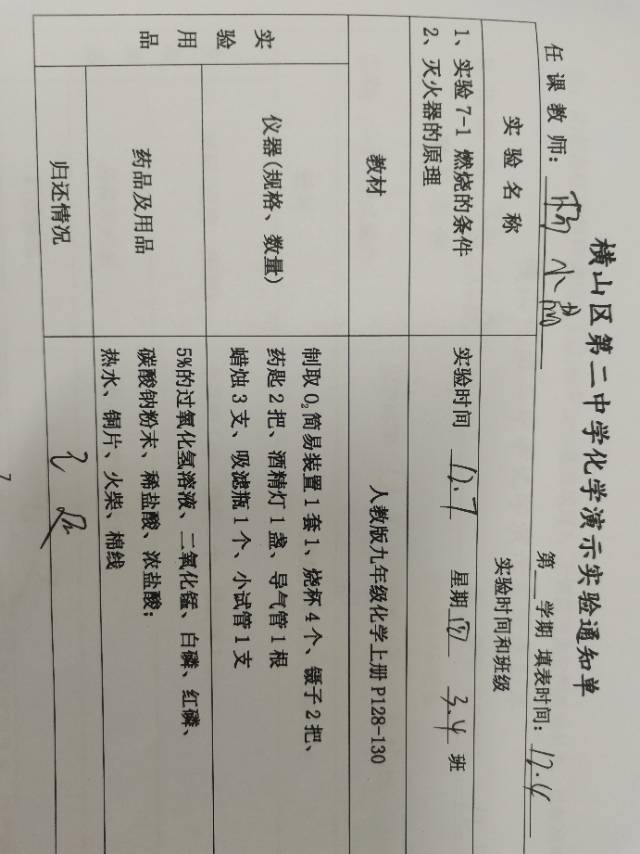 横山区第二中学化学演示实验通知单
任课教师: 小
第 学期 填表时间: 12.4
实验名称
实验时间和班级
1、实验7-1 燃烧的条件
2、灭火器的原理
实验时间 12.7 星期四 3.4 班
教材
人教版九年级化学上册 P128-130
实验用品
仪器(规格、数量)
制取O₂简易装置1套1、烧杯4个、镊子2把、
药匙2把、酒精灯1盏、导气管1根
蜡烛3支、吸滤瓶1个、小试管1支
药品及用品
5%的过氧化氢溶液、二氧化锰、白磷、红磷、
碳酸钠粉末、稀盐酸、浓盐酸;
热水、铜片、火柴、棉线
归还情况
已归
7